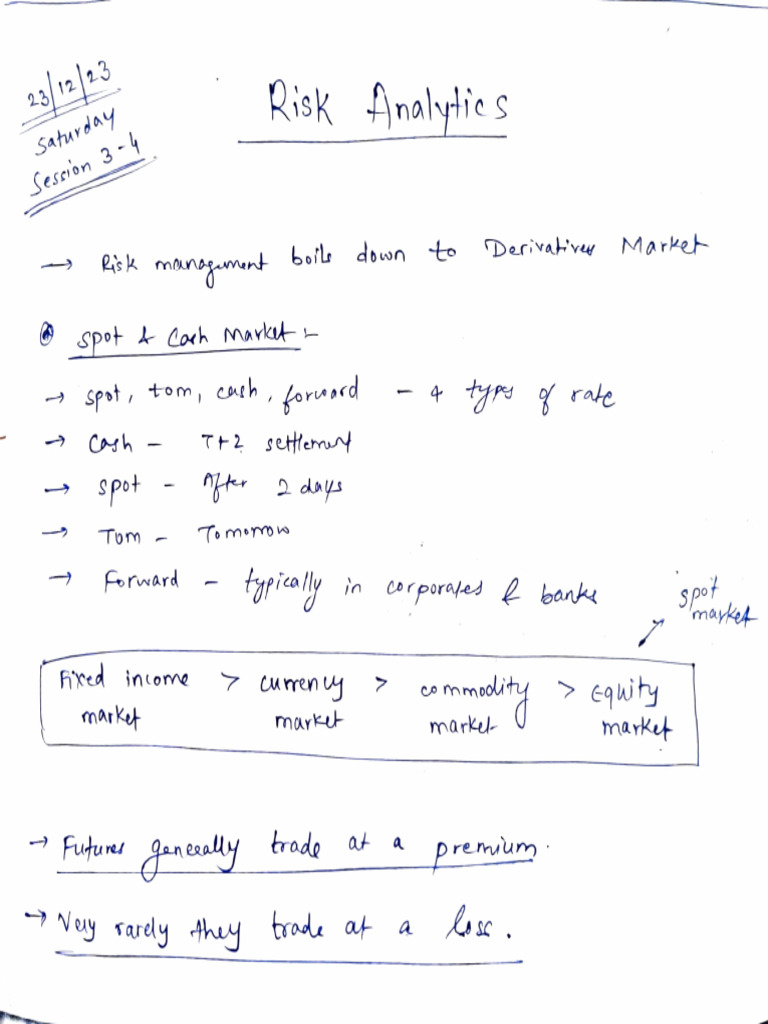 23/12/23
Saturday
Session 3-4
Risk Analytics
→ Risk management boils down to Derivatives Market
Spot & Cash Market :-
→ Spot, tom, cash, forward - 4 types of rate
→ Cash - T+2 settlement
→ Spot - After 2 days
→ Tom - Tomorrow
→ Forward - typically in corporates & banks
spot market
Fixed income market > currency market > commodity market > Equity market
→ Futures generally trade at a premium.
→ Very rarely they trade at a loss.